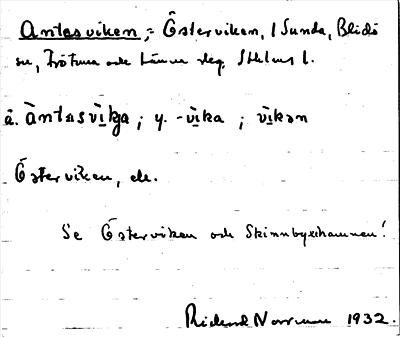 Antasviken, = Österviken, / Sunda, Blidö
sn, Frötuna och Länna slg, Sthlms l.
ä. àntasvìkja; y. -vìka; vìkən
Österviken, etc.
Se Österviken och Skinnbyxehamnen!
Rickard Norrman 1932.